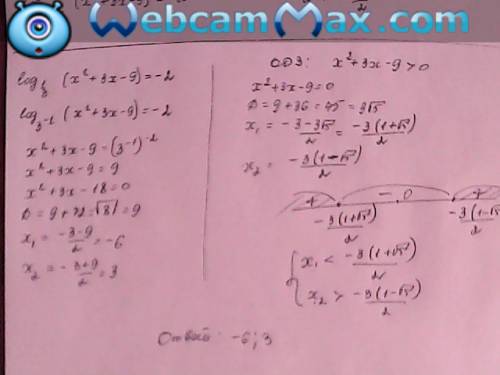 WebcamMax.com
log⅓ (x²+3x-9)=-2
log₃₋₁ (x²+3x-9)=-2
x²+3x-9=(3⁻¹)⁻²
x²+3x-9=9
x²+3x-18=0
D=9+72=√81=9
x₁=-3-9/2=-6
x₂=-3+9/2=3
ОДЗ: x²+3x-9>0
x²+3x-9=0
D=9+36=45=3√5
x₁=-3-3√5/2=-3(1+√5)/2
x₂=-3(1-√5)/2
+ - 0 +
-3(1+√5)/2 -3(1-√5)/2
x₁<-3(1+√5)/2
x₂>-3(1-√5)/2
Ответ: -6; 3